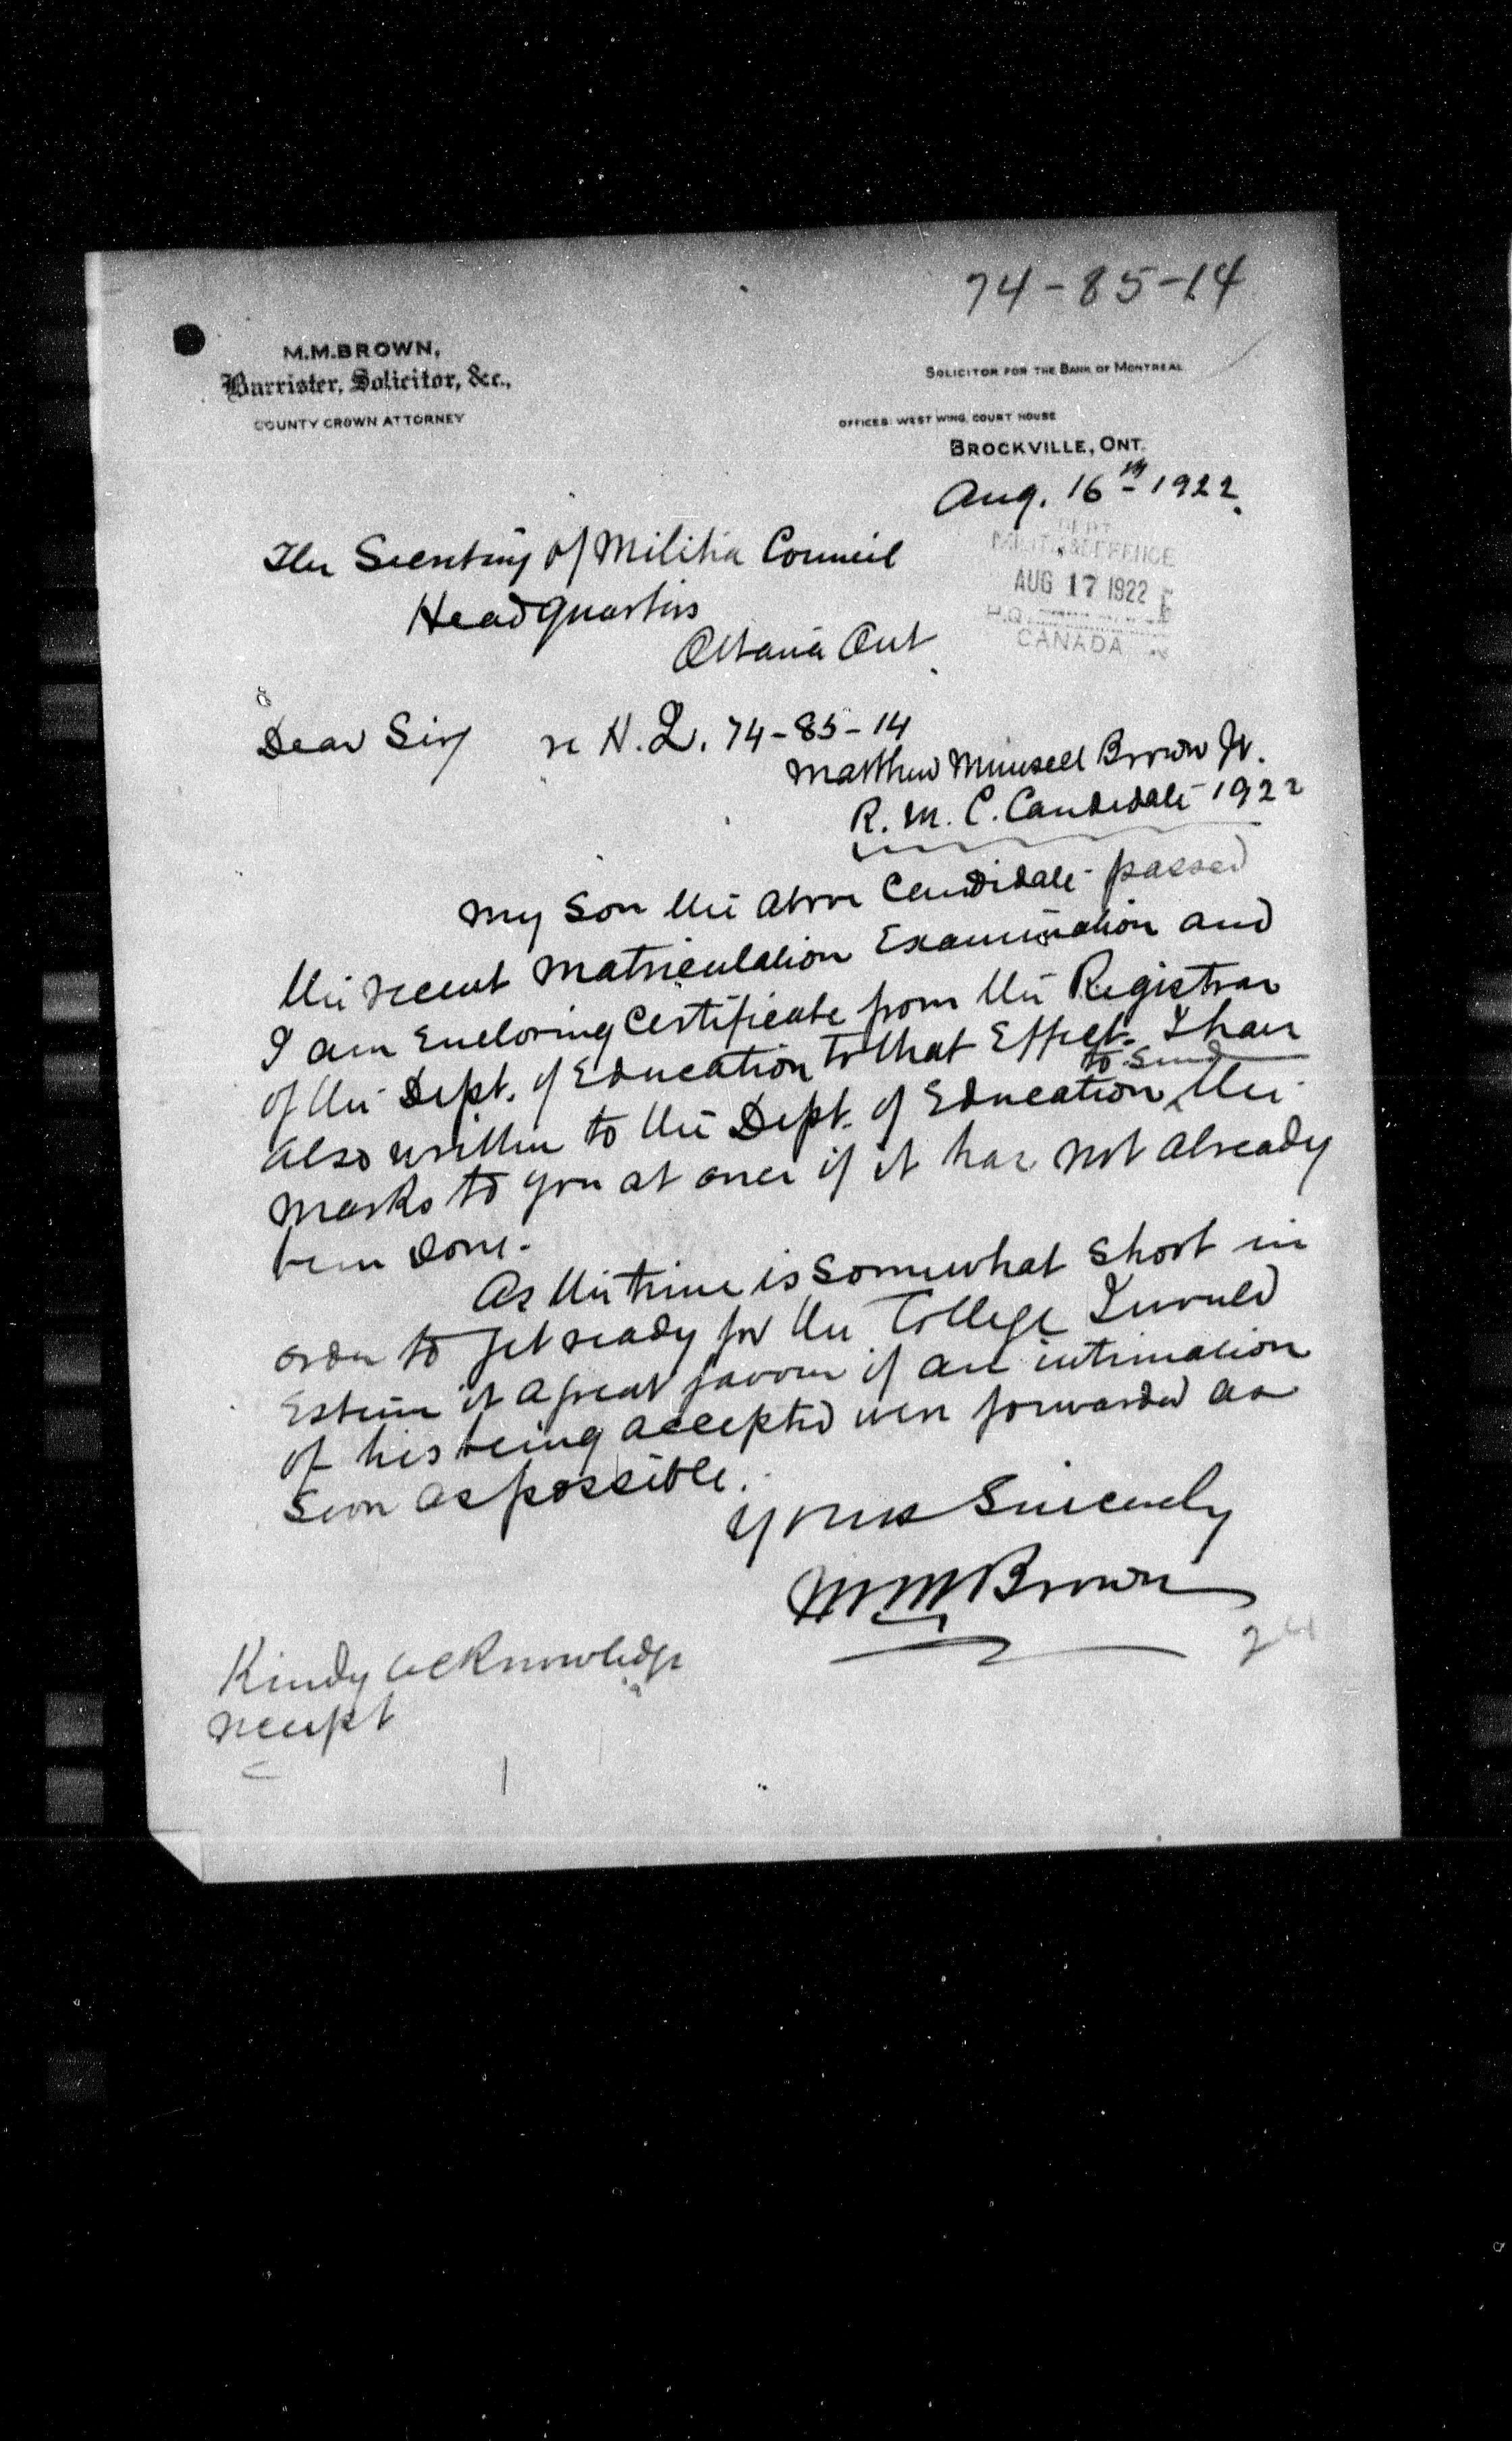 74-85-14
M.M.BROWN,
Barrister, Solicitor, &c.,
COUNTY CROWN ATTORNEY
SOLICITOR FOR THE BANK OF MONTREAL
OFFICES: WEST WING, COURT HOUSE
BROCKVILLE, ONT.
Aug. 16th 1922.
The Secretary of Militia Council
Headquarters
Ottawa Ont.
DEPT
MILITIA & DEFENCE
AUG 17 1922
H.Q.
CANADA
Dear Sir re H.Q. 74-85-14
Matthew Munsell Brown Jr.
R. M. C. Candidate 1922
My son the above Candidate passed
the recent matriculation Examination and
I am Enclosing Certificate from the Registrar
of the Dept. of Education to that Effect. I have
to send
also written to the Dept. of Education the
marks to you at once if it has not already
been done.
As the time is somewhat short in
order to get ready for the College I would
Esteem it a great favour if an intimation
of his being accepted were forwarded as
soon as possible.
Yours Sincerely
MM Brown
24
Kindly acknowledge
receipt